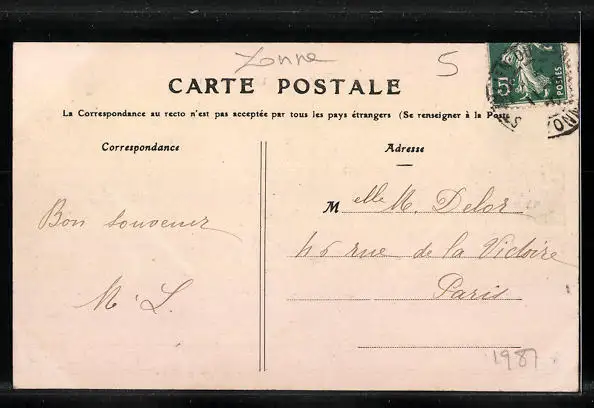 Yonne 5
CARTE POSTALE
La Correspondance au recto n'est pas acceptée par tous les pays étrangers (Se renseigner à la Poste
Correspondance
Adresse
5c
POSTES
Bon souvenir
M. L.
Melle M. Delor
46 rue de la Victoire
Paris
1987